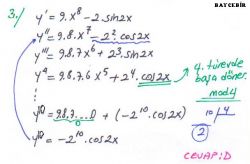 BAYCEBİR
3./ y' = 9.x⁸ - 2.sin2x
y'' = 9.8.x⁷ - 2².cos2x
y''' = 9.8.7x⁶ + 2³.sin2x
y⁴ = 9.8.7.6x⁵ + 2⁴.cos2x
4. türevde
başa döner.
mod4
10 4
2
y¹⁰ = 9.8.7...0 + (-2¹⁰.cos2x)
0
y¹⁰ = -2¹⁰.cos2x
CEVAP:D